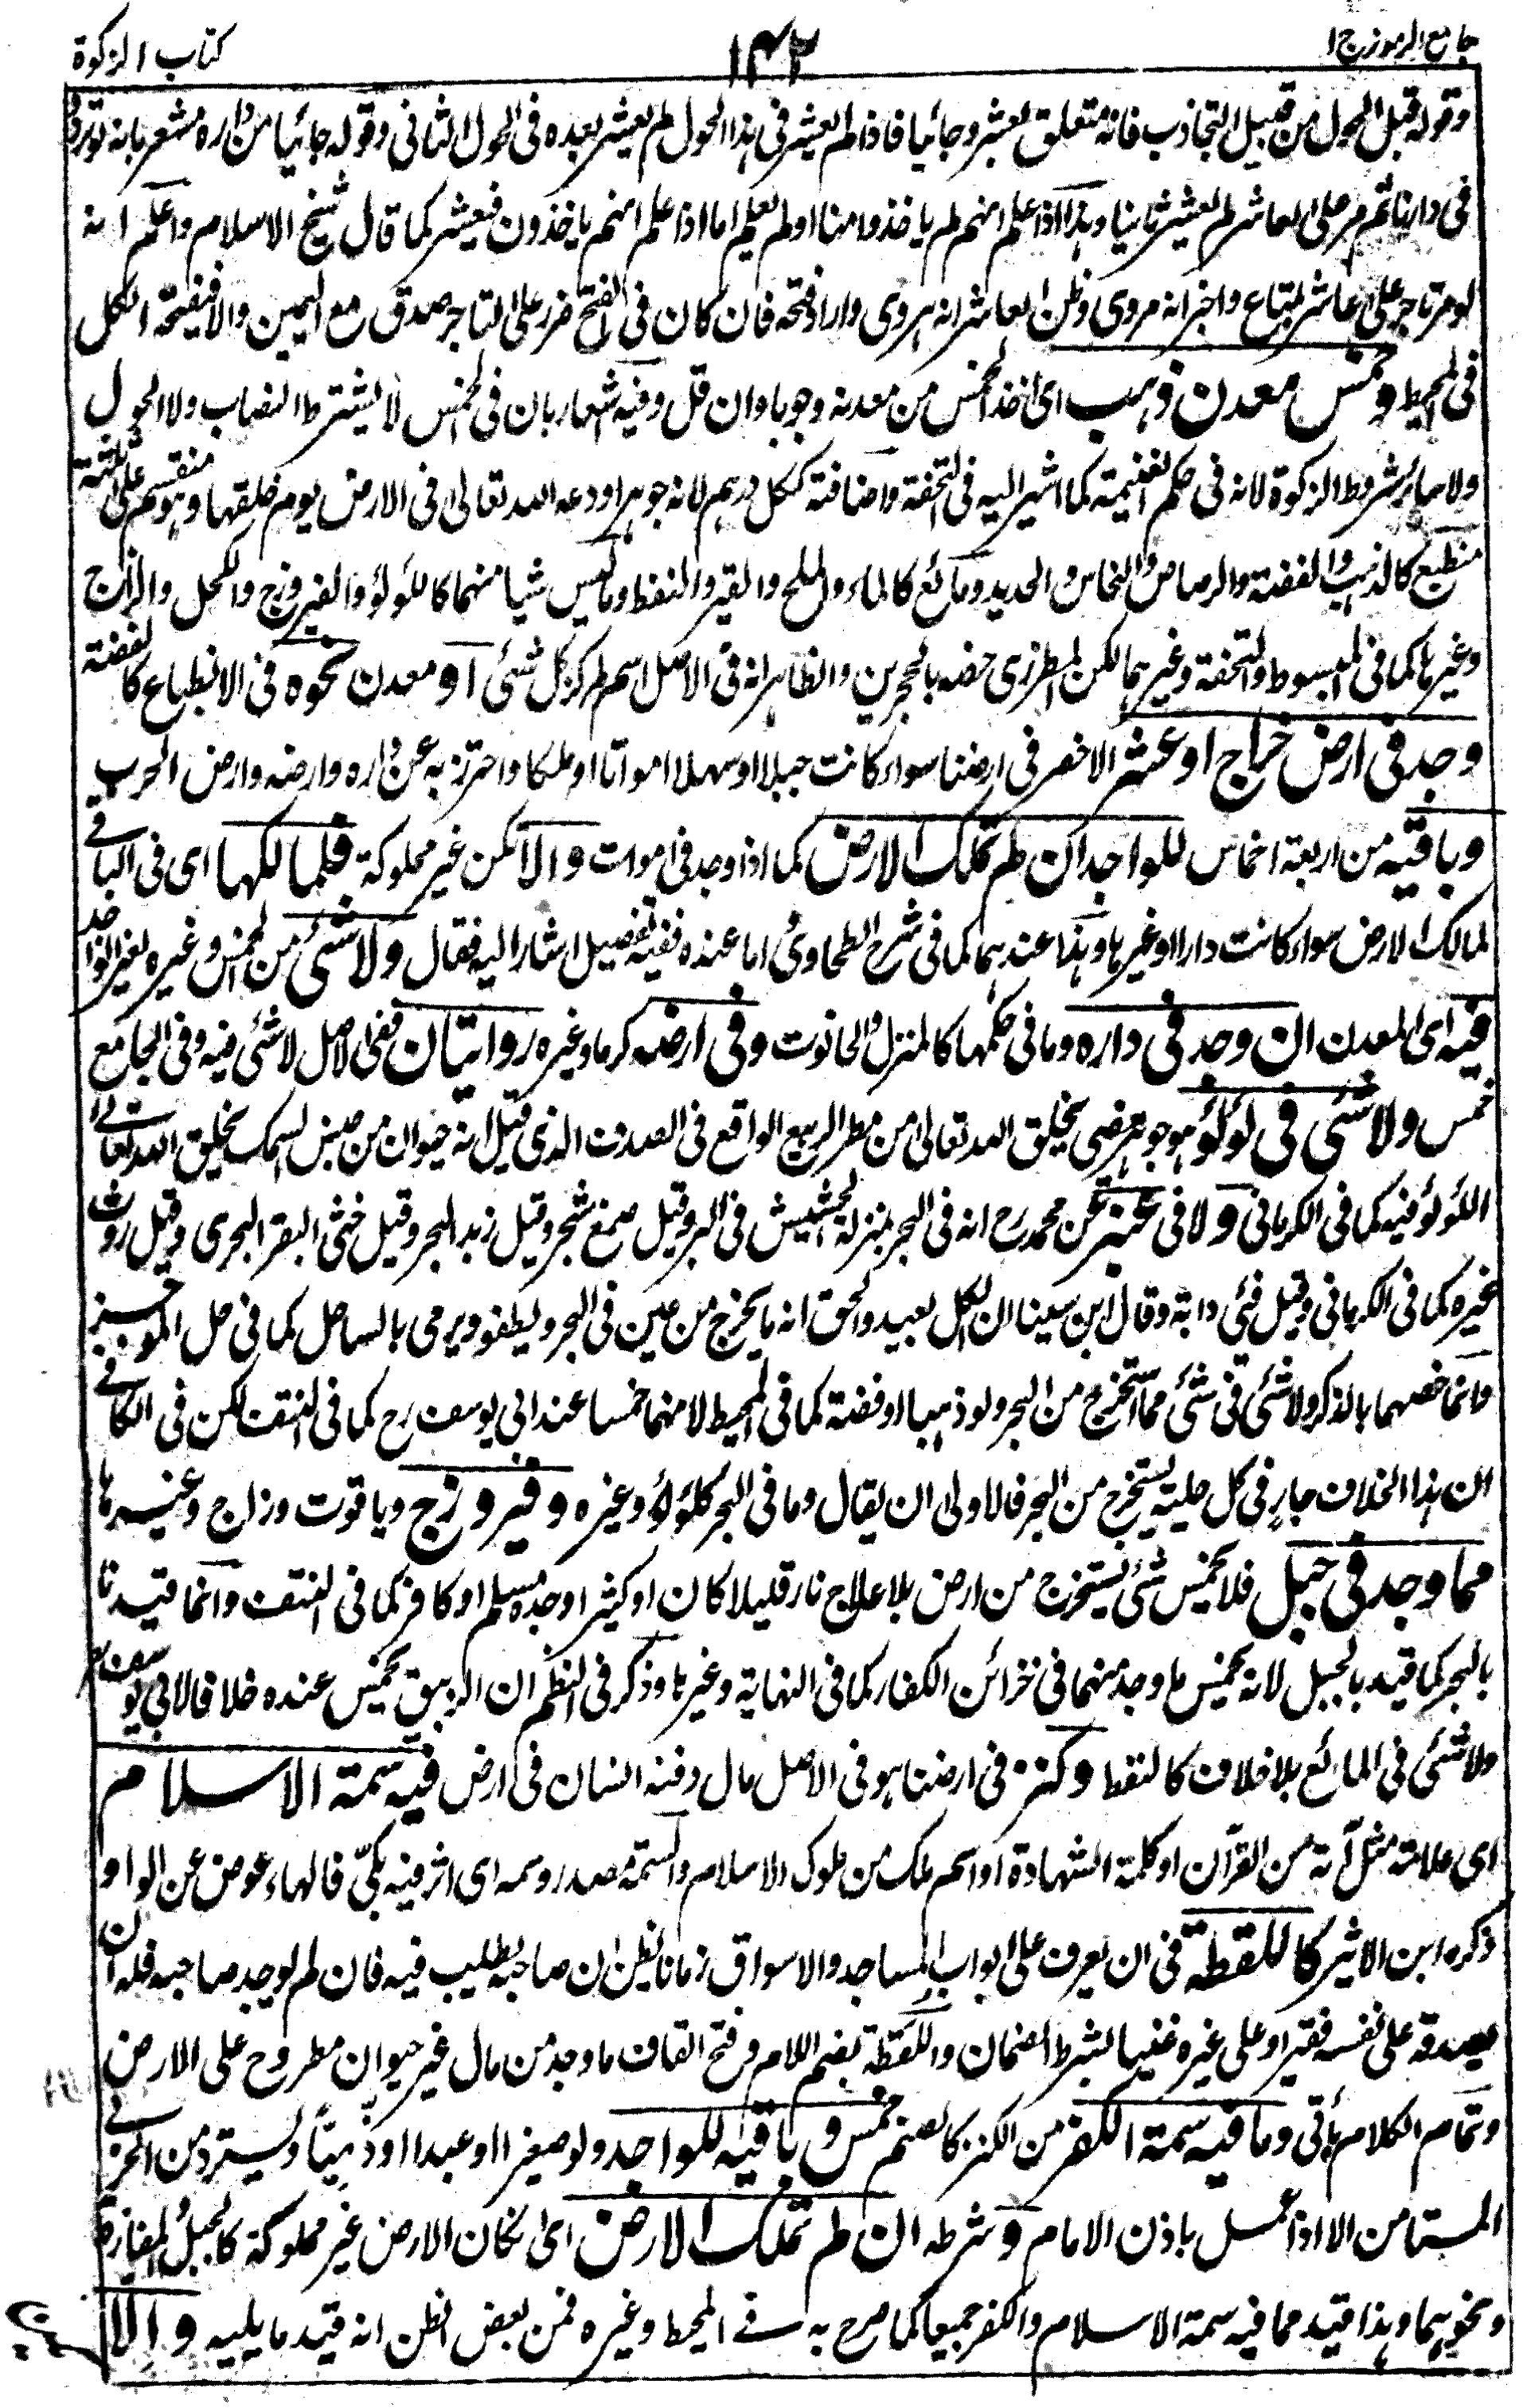 جامع الرموز ج١
١٤٢
كتاب الزكوة
وقوله قبل الحول من قبيل التجاذب فانه متعلق بعشر وجائيا فاذا لم يعشر فى هذا الحول لم يعشر بعده فى الحول الثانى وقوله جائيا من داره مشعر بانه لو تردد
فى دارنا ثم مر على العاشر لم يعشر ثانيا وهذا اذا علم انهم لم ياخذوا منا او لم يعلم اما اذا علم انهم ياخذون فيعشر كما قال شيخ الاسلام واعلم انه
لو مر تاجر على عاشر بمتاع واخبر انه مروى وظن العاشر انه هروى واراد فتحه فان كان فى الفتح ضرر على التاجر صدق مع اليمين والا فيفتحه الكل
فى المحيط وخمس معدن ذهب اى اخذ الخمس من معدنه وجوبا وان قل وفيه اشعار بان فى الخمس لا يشترط النصاب ولا الحول
ولا سائر شروط الزكوة لانه فى حكم الغنيمة كما اشير اليه فى التحفة واضافته ككل درهم لانه جوهر اودعه الله تعالى فى الارض يوم خلقها وهو منقسم على ثلثة
منطبع كالذهب والفضة والرصاص والنحاس والحديد ومائع كالماء والملح والقير والنفط وما ليس شيا منهما كاللؤلؤ والفيروزج والكحل والزاج
وغيرها كما فى المبسوط والتحفة وغيرهما لكن المطرزى خصه بالحجرين والظاهر انه فى الاصل اسم لمركز كل شئ او معدن نحوه فى الانطباع كالفضة
وجد فى ارض خراج او عشر الاخصر فى ارضنا سواء كانت جبلا او سهلا امواتا او ملكا واحترز به عن داره وارضه وارض الحرب
وباقيه من اربعة اخماس للواجد ان لم تملك الارض كما اذا وجد فى اموات والا تكن غير مملوكة فلمالكها اى فى الباقى
لمالك الارض سواء كانت دارا او غيرها وهذا عندهما كما فى شرح الطحاوى اما عنده ففيه تفصيل اشار اليه فقال ولا شئ من الخمس وغيره لغير الواجد
فيه اى المعدن ان وجد فى داره وما فى حكمها كالمنزل والحانوت وفى ارضه كرما وغيره روايتان ففى الاصل لا شئ فيه وفى الجامع
خمس ولا شئ فى لؤلؤ هو جوهر مضئ يخلق الله تعالى من مطر الربيع الواقع فى الصدف الذى قيل انه حيوان من جنس السمك يخلق الله تعالى
اللؤلؤ فيه كما فى الكرمانى ولا فى عنبر عن محمد رح انه فى البحر بمنزلة الحشيش فى البر وقيل صمغ شجر وقيل زبد البحر وقيل خثى البقر البحرى وقيل روث
غيره كما فى الكرمانى وقيل قئى دابة وقال ابن سينا ان الكل بعيد والحق انه ما يخرج من عين فى البحر ويطفو ويرمى بالساحل كما فى حل الموجز
وانما خصهما بالذكر ولا شئ فى شئ مما استخرج من البحر ولو ذهبا او فضة كما فى المحيط لا منهما خمسا عند ابى يوسف رح كما فى النتف لكن فى الكافى
ان هذا الخلاف جار فى كل حلية يستخرج من البحر فالاولى ان يقال وما فى البحر كلؤلؤ وغيره وفيروزج وياقوت وزاج وغيرها
مما وجد فى جبل فلا يخمس شئ يستخرج من ارض بلا علاج نار قليلا كان او كثيرا وجده مسلم او كافر كما فى النتف وانما قيدنا
بالبحر كما قيد بالجبل لانه يخمس ما وجد منهما فى خزائن الكفار كما فى النهاية وغيرها وذكر فى النظم ان الزيبق يخمس عنده خلافا لابى يوسف رح
ولا شئ فى المائع بلا خلاف كالنفط وكنز فى ارضنا هو فى الاصل مال دفنه انسان فى ارض فيه سمة الاسلام
اى علامته مثل آية من القرآن او كلمة الشهادة او اسم ملك من ملوك الاسلام والسمة مصدر وسمه اى اثر فيه بكى فالهاء عوض عن الواو
ذكره ابن الاثير كاللقطة فى ان يعرف على ابواب المساجد والاسواق زمانا يظن ان صاحبه يطلب فيه فان لم يوجد صاحبه فله ان
يصدقه على نفسه فقيرا او على غيره غنيا بشرط الضمان واللقطة بضم اللام وفتح القاف ما وجد من مال غير حيوان مطروح على الارض
وتمام الكلام يأتى وما فيه سمة الكفر من الكنز كالصنم خمس وباقيه للواجد ولو صغيرا او عبدا او ذميا ويسترد من الحربى
المستامن الا اذا عمل باذن الامام وشرطه ان لم تملك الارض اى تكن الارض غير مملوكة كالجبل والمفازة
ونحوهما وهذا قيد مما فيه سمة الاسلام والكفر جميعا كما صرح به فى المحيط وغيره فمن بعض الظن انه قيد ما يليه والا